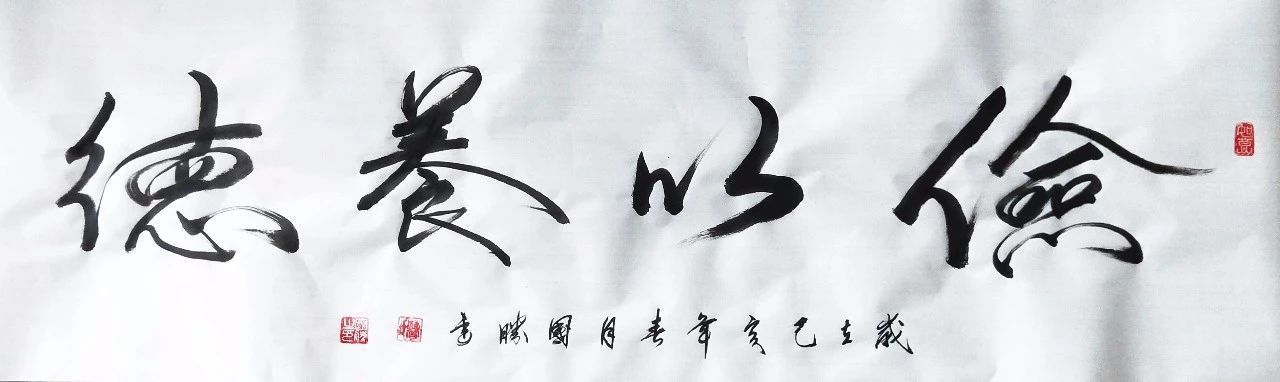 儉以養德
歲在己亥年春月國勝書
如意